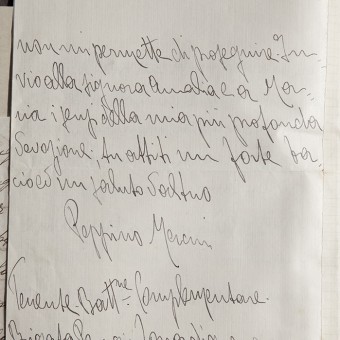 non mi permette di proseguire. In-
vio alla Signora Amalia e a Mar-
ia i sensi della mia più profonda
devozione. An a ti ti un forte ba-
cio ed un saluto Saltuo
Peppino Mercuri
Tenente Batt.ne Complementare.
Brigata